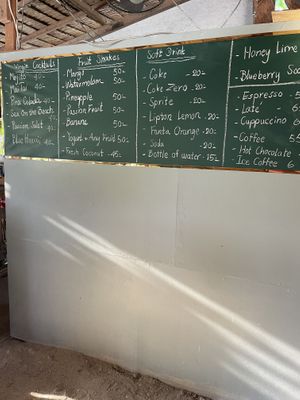 Virgin Cocktails
Mojito 40.-
Mai Tai 40.-
Pina Colada 40.-
Sex On the Beach
Passion Salut 40.-
Blue Hawaii 40.-
Fruit Shakes
- Mango 50.-
- Watermelon 50.-
- Pineapple 50.-
- Passion Fruit 50.-
- Banana 50.-
- Yogurt + Any Fruid 50.-
- Fresh Coconut -45.-
Soft Drink
- Coke -20-
- Coke Zero -20-
- Sprite -20-
- Lipton Lemon -20-
- Fanta Orange -20-
- Soda -20-
- Bottle of water -15-
- Honey Lime
- Blueberry So
- Espresso 5
- Late 6
- Cappuccino 6
- Coffee 55
- Hot Chocolate
Ice Coffee 6